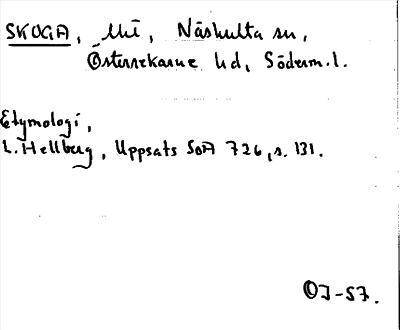 SKOGA, Uti, Näshulta sn,
Österrekarne hd, Söderm. l.
Etymologi,
L. Hellberg, Uppsats SOA 726, s. 131.
OJ-57.